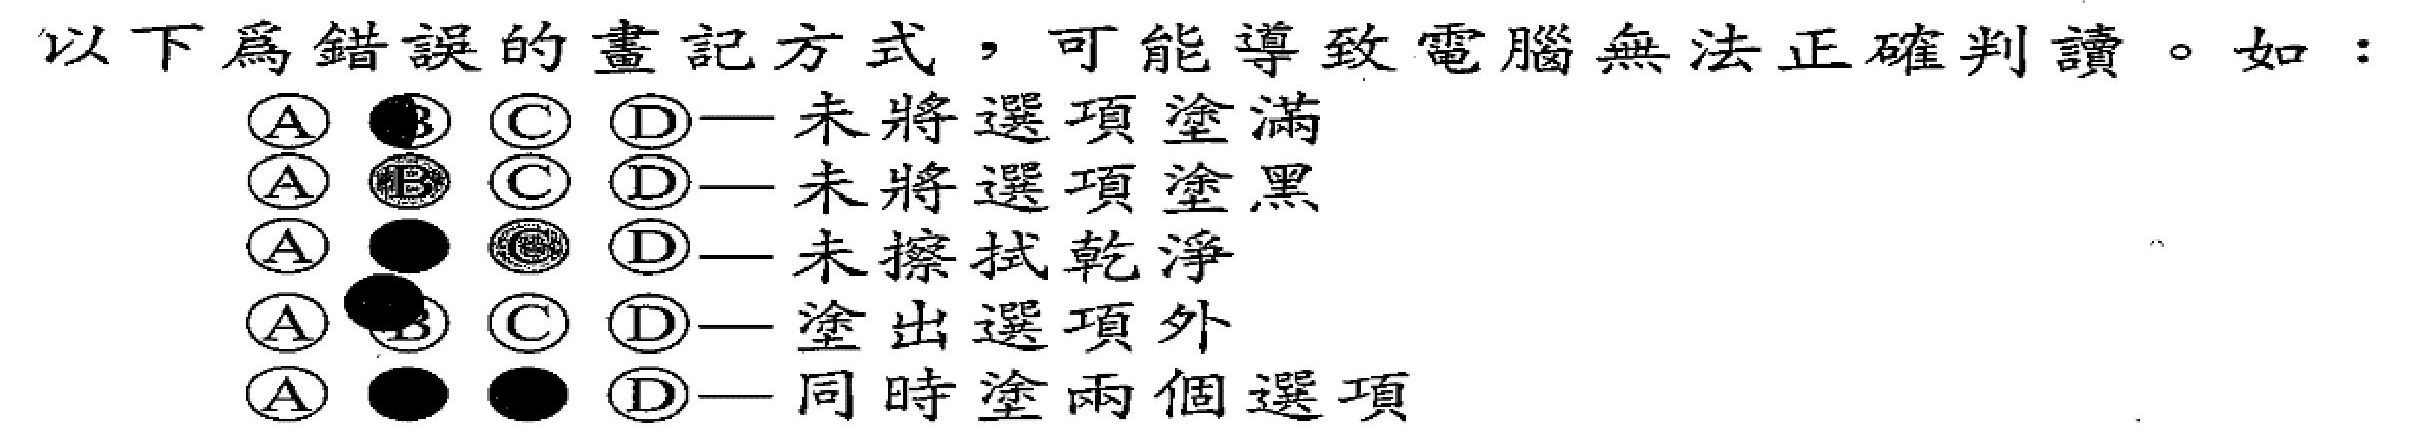 以下為錯誤的畫記方式，可能導致電腦無法正確判讀。如：
Ⓐ Ⓑ Ⓒ Ⓓ—未將選項塗滿
Ⓐ Ⓑ Ⓒ Ⓓ—未將選項塗黑
Ⓐ ● Ⓒ Ⓓ—未擦拭乾淨
Ⓐ Ⓑ Ⓒ Ⓓ—塗出選項外
Ⓐ ● ● Ⓓ—同時塗兩個選項